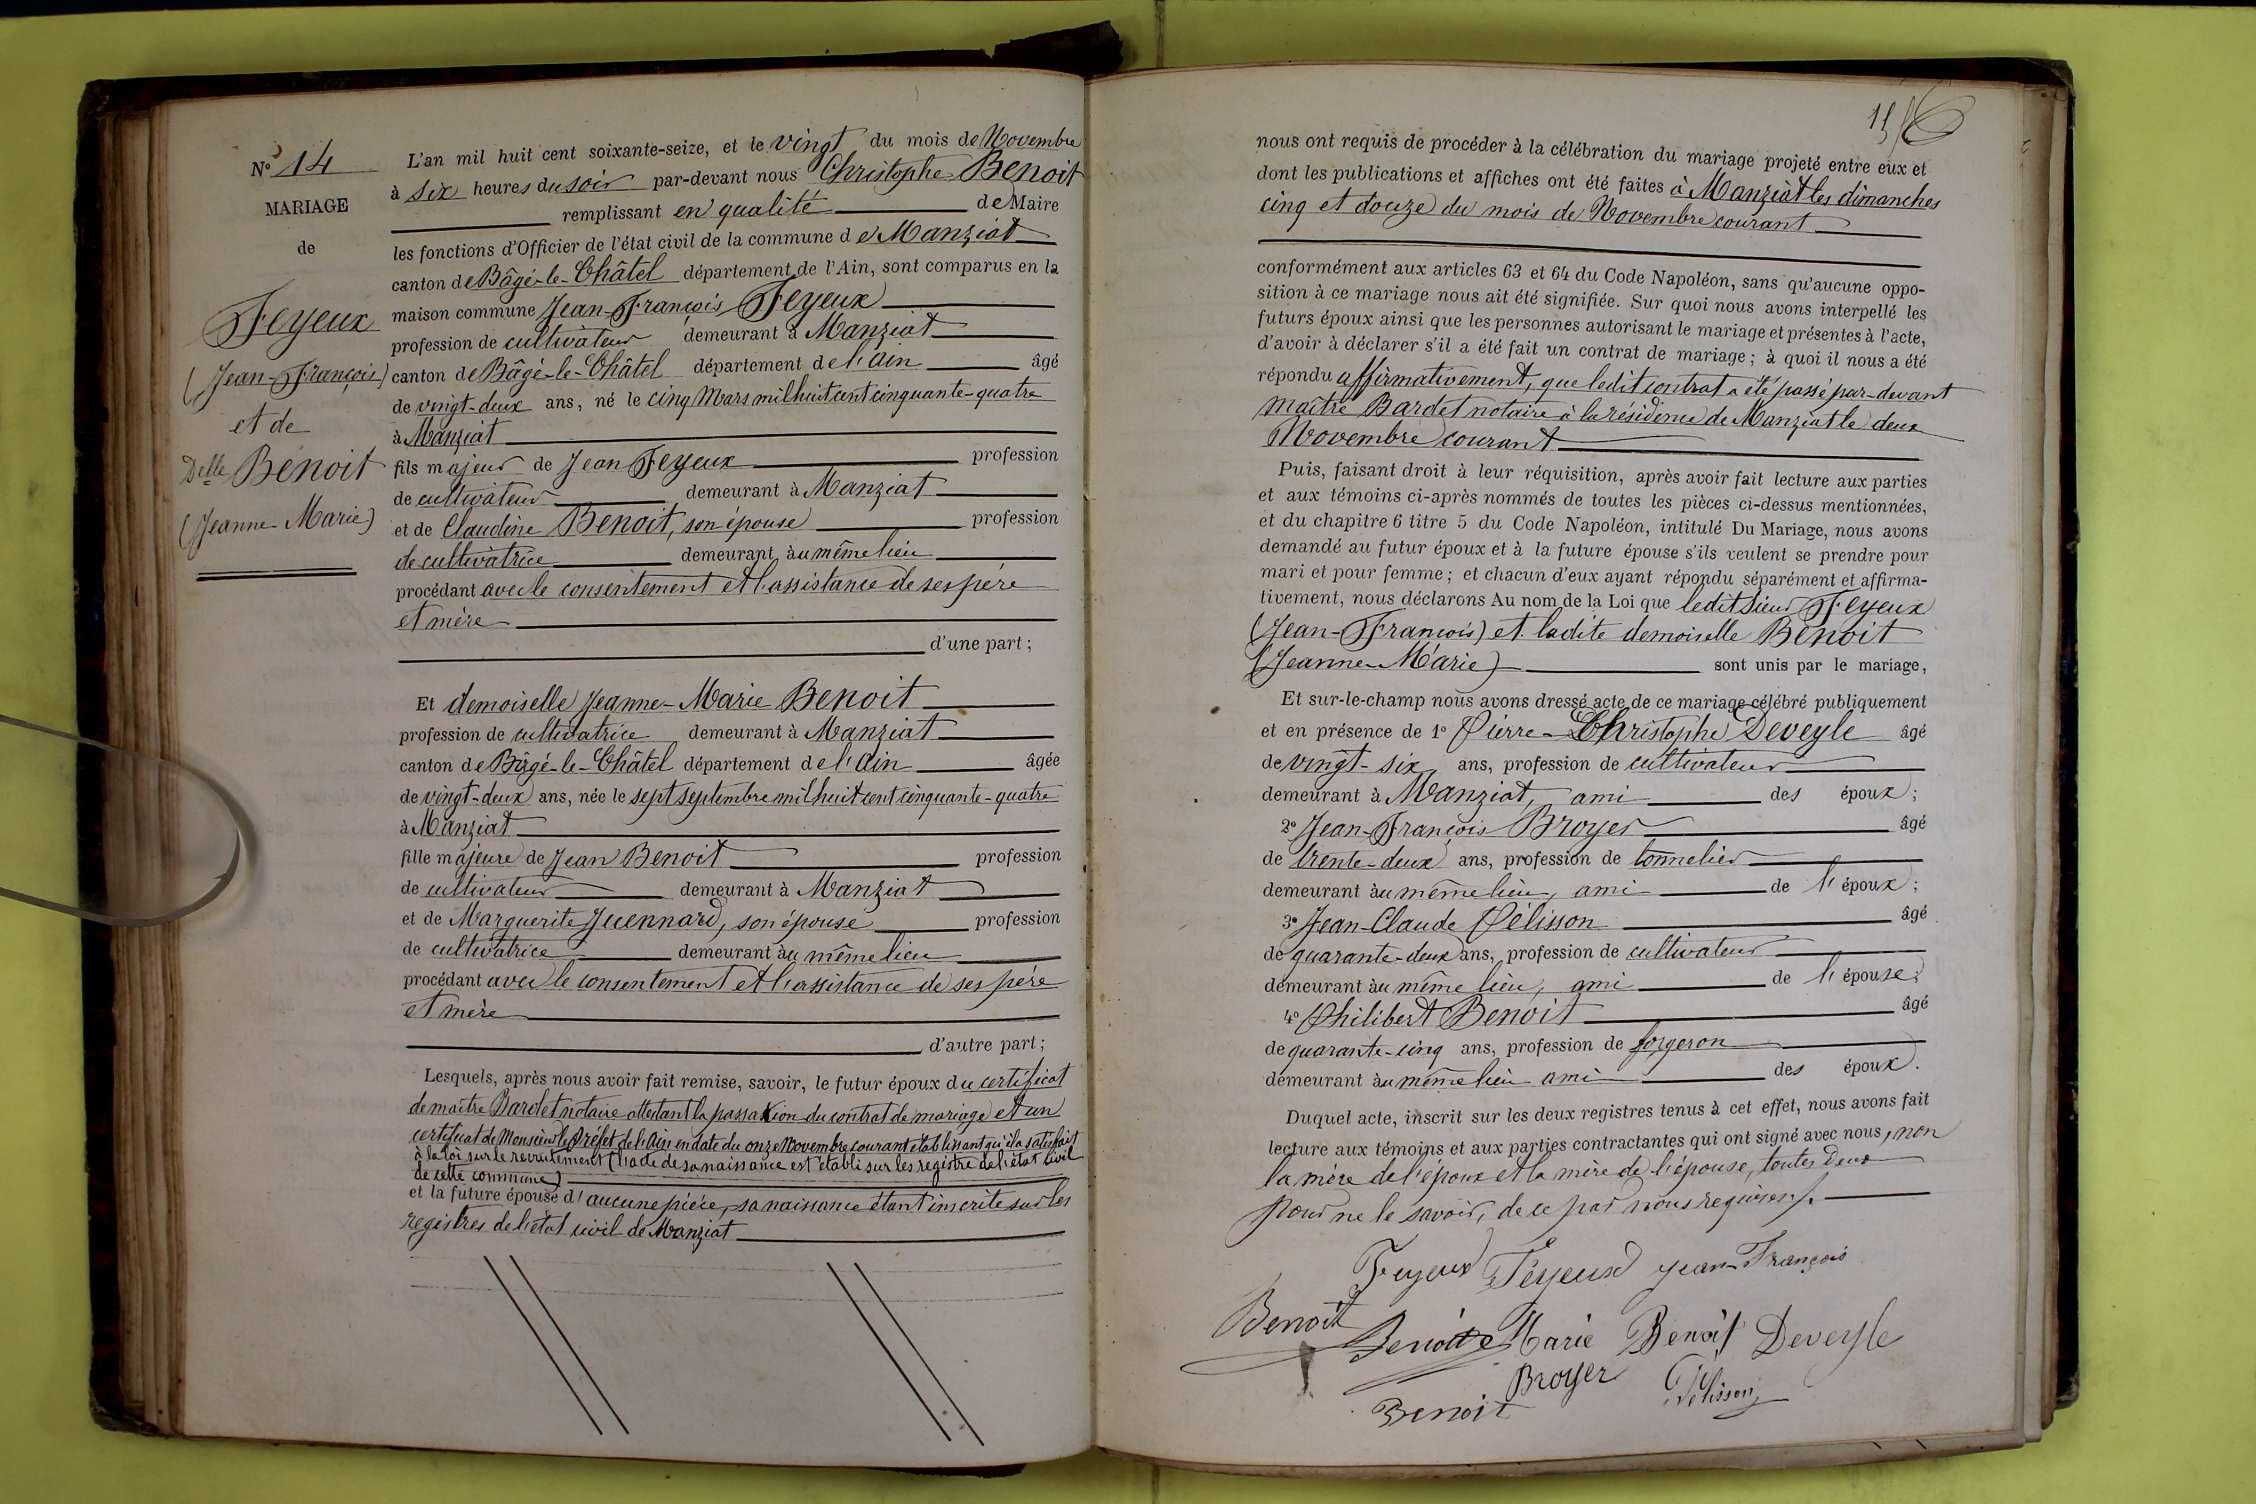 N° 14
MARIAGE
de
Feyeux
(Jean-François)
et de
Delle Benoit
(Jeanne-Marie)
L'an mil huit cent soixante-seize, et le vingt du mois de Novembre
à six heures du soir par-devant nous Christophe Benoit
remplissant en qualité de Maire
les fonctions d'Officier de l'état civil de la commune de Manziat
canton de Bâgé-le-Châtel département de l'Ain, sont comparus en la
maison commune Jean-François Feyeux
profession de cultivateur demeurant à Manziat
canton de Bâgé-le-Châtel département de l'Ain âgé
de vingt-deux ans, né le cinq Mars mil huit cent cinquante-quatre
à Manziat
fils majeur de Jean Feyeux profession
de cultivateur demeurant à Manziat
et de Claudine Benoit, son épouse profession
de cultivatrice demeurant au même lieu
procédant avec le consentement et l'assistance de ses père
et mère
d'une part;
Et demoiselle Jeanne-Marie Benoit
profession de cultivatrice demeurant à Manziat
canton de Bâgé-le-Châtel département de l'Ain âgée
de vingt-deux ans, née le sept septembre mil huit cent cinquante-quatre
à Manziat
fille majeure de Jean Benoit profession
de cultivateur demeurant à Manziat
et de Marguerite Juennard, son épouse profession
de cultivatrice demeurant au même lieu
procédant avec le consentement et l'assistance de ses père
et mère
d'autre part;
Lesquels, après nous avoir fait remise, savoir, le futur époux du certificat
de maître Bardet notaire attestant la passation du contrat de mariage et un
certificat de Monsieur le Préfet de l'Ain en date du onze Novembre courant établissant qu'il a satisfait
à la loi sur le recrutement (l'acte de sa naissance est établi sur les registre de l'état civil
de cette commune)
et la future épouse d'aucune pièce, sa naissance étant inscrite sur les
registres de l'état civil de Manziat
nous ont requis de procéder à la célébration du mariage projeté entre eux et
dont les publications et affiches ont été faites à Manziat les dimanches
cinq et douze du mois de Novembre courant
conformément aux articles 63 et 64 du Code Napoléon, sans qu'aucune oppo-
sition à ce mariage nous ait été signifiée. Sur quoi nous avons interpellé les
futurs époux ainsi que les personnes autorisant le mariage et présentes à l'acte,
d'avoir à déclarer s'il a été fait un contrat de mariage; à quoi il nous a été
répondu affirmativement, que ledit contrat a été passé par-devant
maître Bardet notaire à la résidence de Manziat le deux
Novembre courant
Puis, faisant droit à leur réquisition, après avoir fait lecture aux parties
et aux témoins ci-après nommés de toutes les pièces ci-dessus mentionnées,
et du chapitre 6 titre 5 du Code Napoléon, intitulé Du Mariage, nous avons
demandé au futur époux et à la future épouse s'ils veulent se prendre pour
mari et pour femme; et chacun d'eux ayant répondu séparément et affirma-
tivement, nous déclarons Au nom de la Loi que ledit Sieur Feyeux
(Jean-François) et ladite demoiselle Benoit
(Jeanne-Marie) sont unis par le mariage,
Et sur-le-champ nous avons dressé acte de ce mariage célébré publiquement
et en présence de 1° Pierre-Christophe Deveyle âgé
de vingt-six ans, profession de cultivateur
demeurant à Manziat, ami des époux;
2° Jean-François Broyer âgé
de trente-deux ans, profession de tonnelier
demeurant au même lieu, ami de l'époux;
3° Jean-Claude Pélisson âgé
de quarante-deux ans, profession de cultivateur
demeurant au même lieu, ami de l'épouse;
4° Philibert Benoit âgé
de quarante-cinq ans, profession de forgeron
demeurant au même lieu ami des époux.
Duquel acte, inscrit sur les deux registres tenus à cet effet, nous avons fait
lecture aux témoins et aux parties contractantes qui ont signé avec nous, non
la mère de l'époux et la mère de l'épouse, toutes deux
pour ne le savoir, de ce par nous requises.
Feyeux Feyeux Jean François
Benoit Benoite Marie Benoit Deveyle
Broyer Pélisson
Benoit